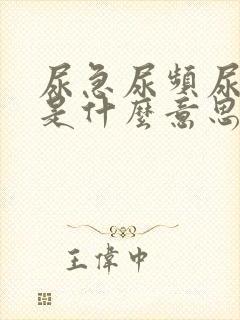 尿急尿頻尿
是什麼意思
王偉中